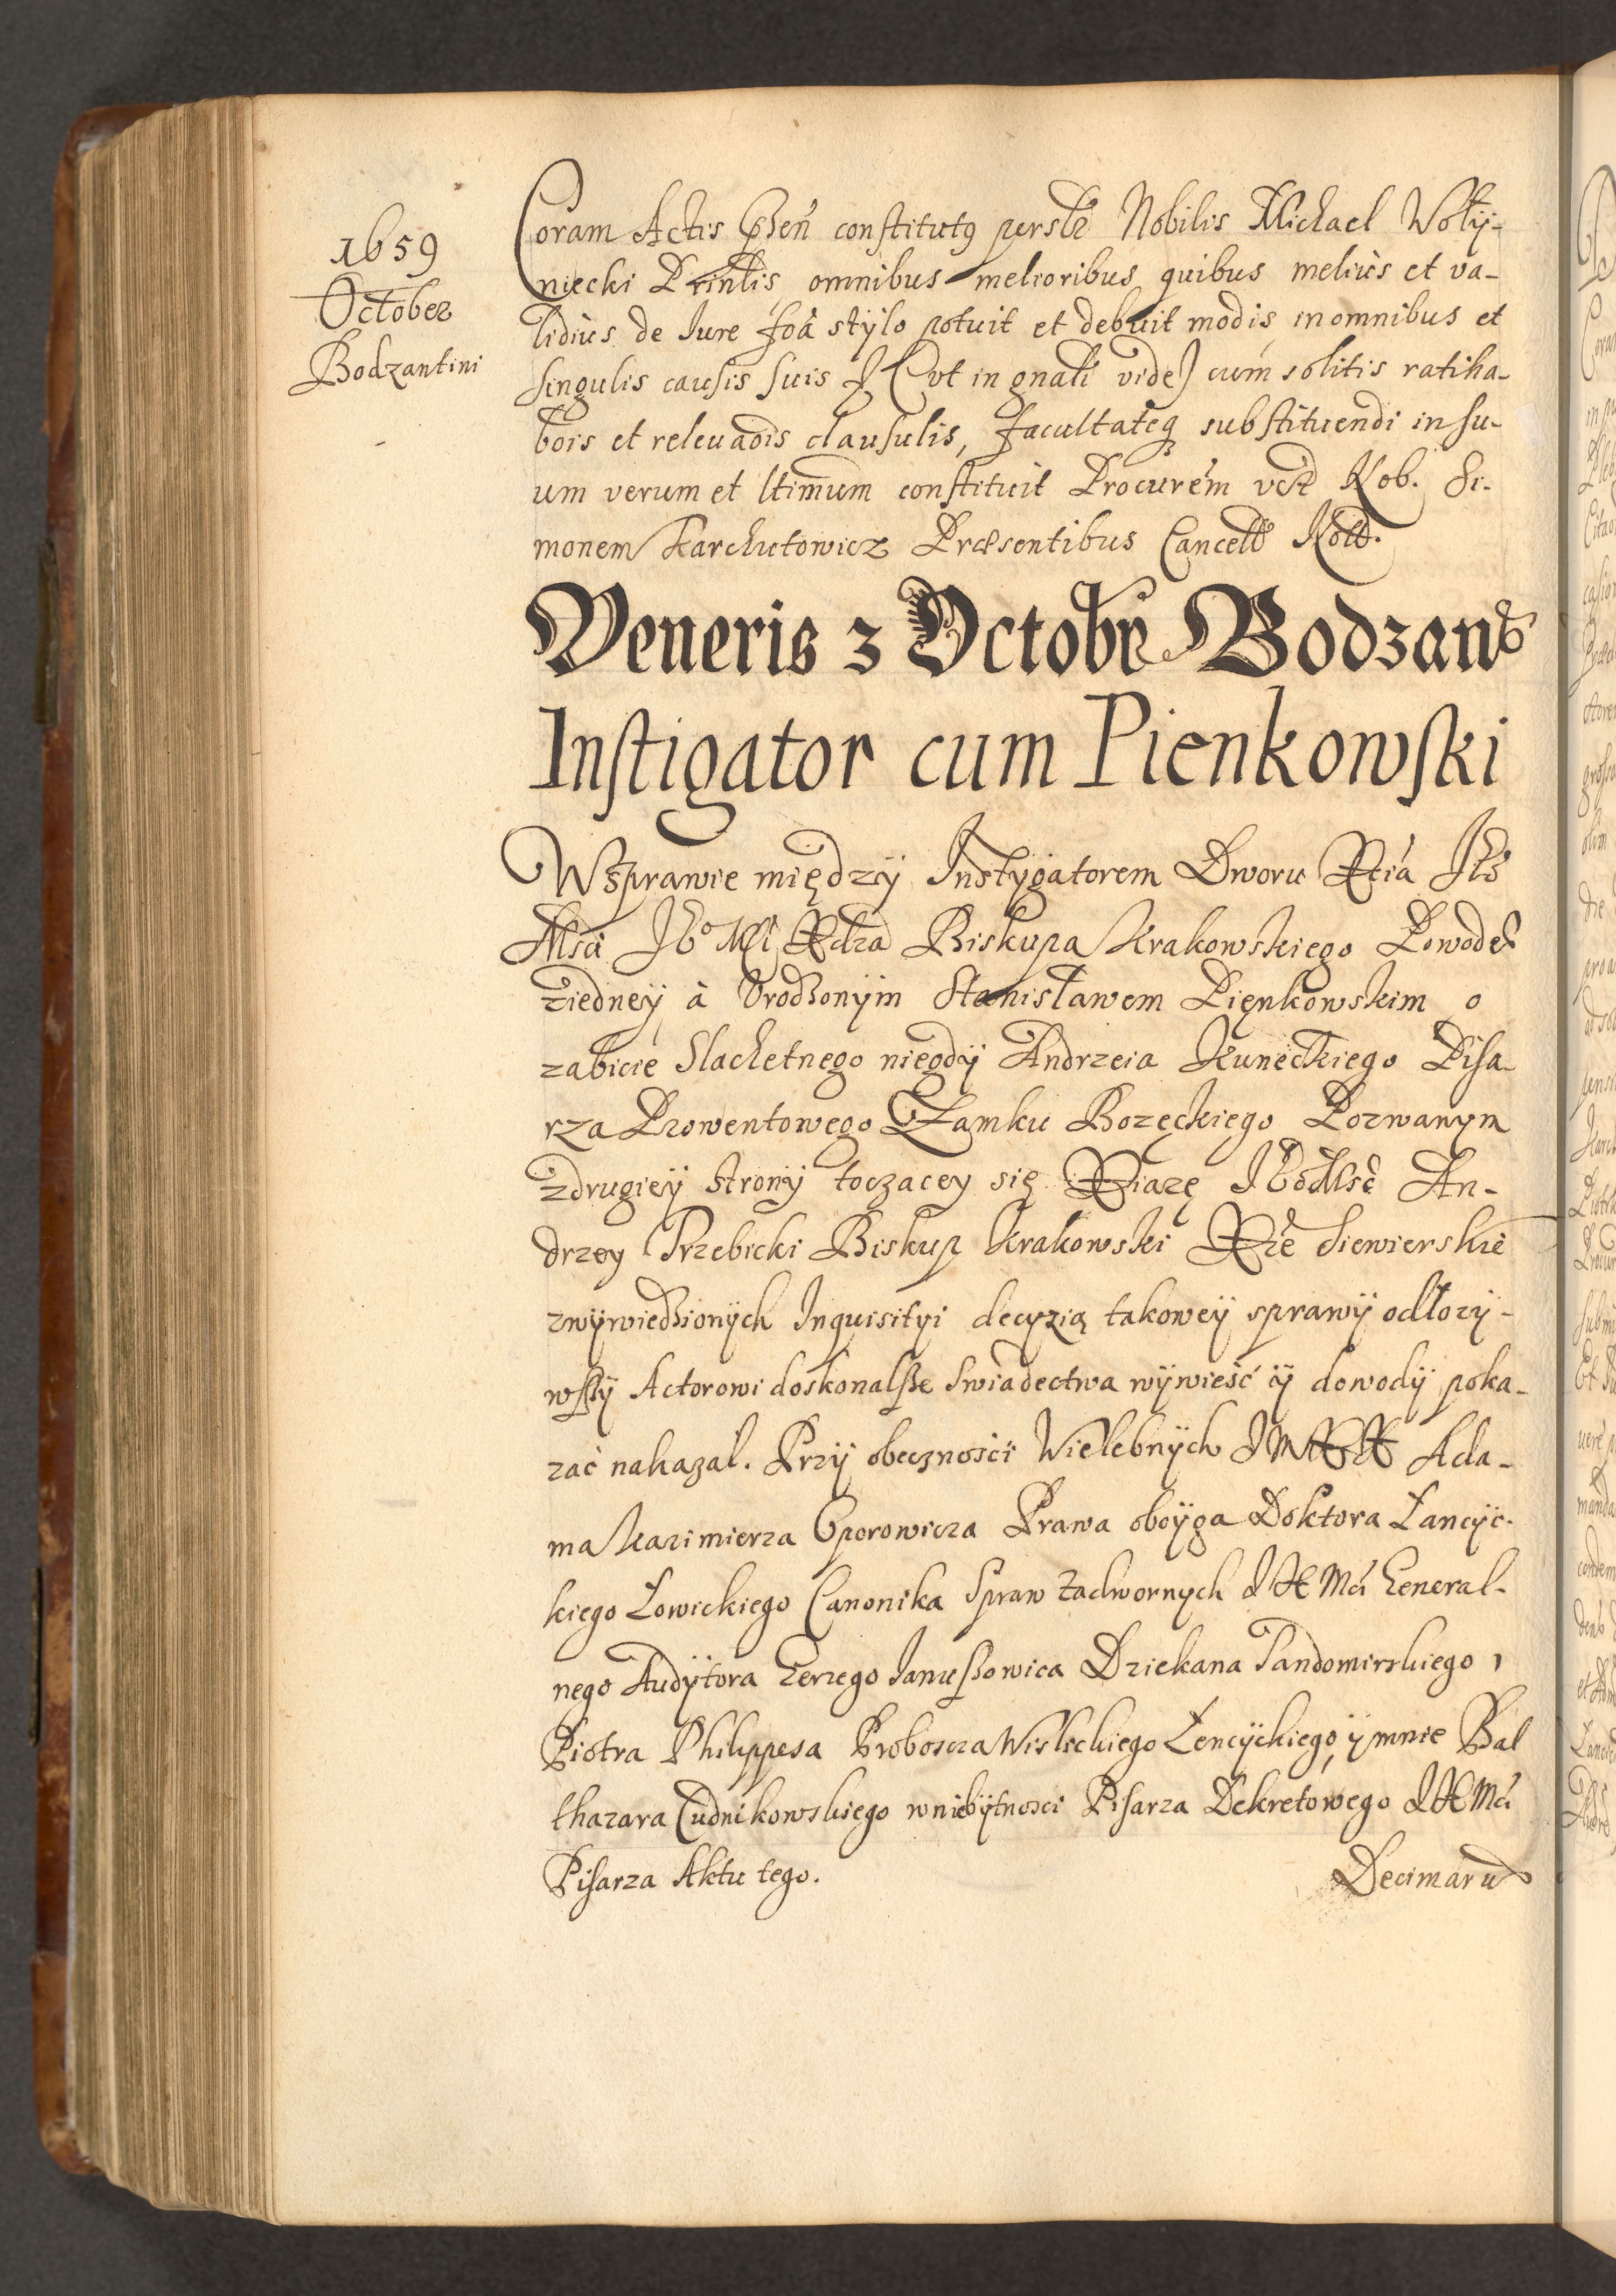 1659
October
Bodzantini
Coram Actis pñeñ constitutq persłr Nobilis Michael Wołÿ-
niecki Prinlis omnibus melioribus quibus melius et va-
lidius de Iure foâ stÿlo potuit et debuit modis in omnibus et
singulis causis suis (vt in gnali vide) cum solitis ratiha-
bois et releuaois clausulis, facultateq substituendi in su-
um verum et ltimum constituit Procurem Nob. Si-
monem Karchutowicz Præsentibus Cancell
Veneris 3 Octobr Bodzan
Instigator cum Pienkowski
W sprawie międzÿ Instÿgatorem Dworu
Mści Biskupa Krakowskiego Powodẽ
ziedneÿ à Vrodzonÿm Stanisławem Pięnkowskim o
zabicie Slachetnego niegdÿ Andrzeia Kuneckiego Pisa-
rza Prowentowego Zamku Bozęckiego Pozwanym
zdrugieÿ Stronÿ toczacey się Xiazę An-
drzey Trzebicki Biskup Krakowski Xże Siewierskie
zwÿwiedzionÿch Inquisityi decyzią takoweÿ sprawÿ odłozÿ-
wszÿ Actorowi doskonalsze swiadectwa wÿwieść ÿ dowodÿ poka-
zać nakazal. Przÿ obecznosci Wielebnÿch Ada-
ma Kazimierza Oporowicza Prawa oboÿga Doktora Łancÿc-
kiego Łowickiego Canonika Spraw zadwornych General-
nego Audÿtora Jerzego Januszowica Dziekana Sandomirskiego,
Piotra Philippesa Proboszcza Wislickiego Łencÿckiego, ÿ mnie Bal
thazara Cudnikowskiego w niebÿtnosci Pisarza Dekretowego
Pisarza Aktu tego.
Decimaru